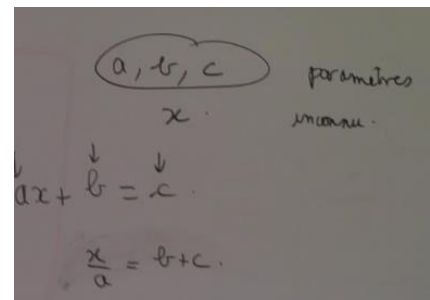 a, b, c parametres
x. inconnu.
ax + b = c.
x/a = b+c.